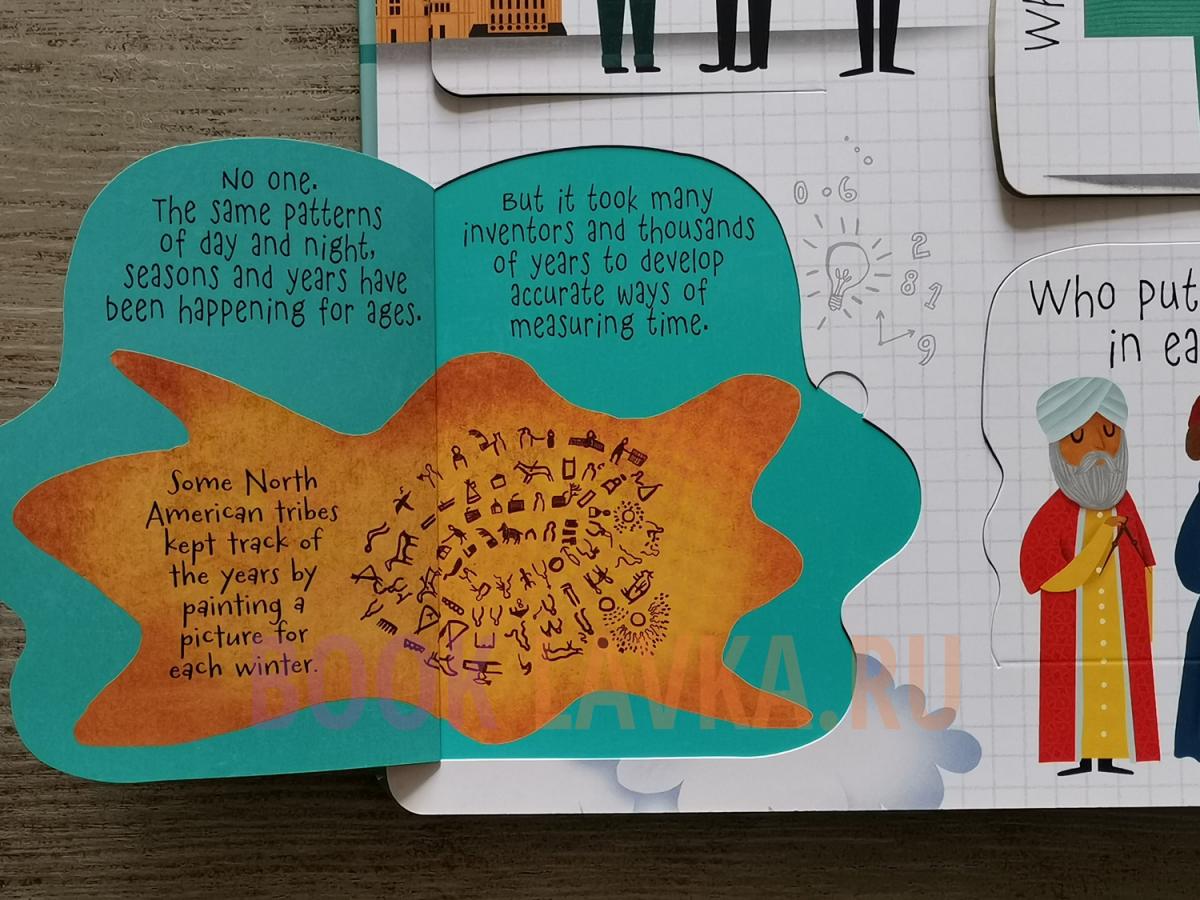 No one.
The same patterns
of day and night,
seasons and years have
been happening for ages.
But it took many
inventors and thousands
of years to develop
accurate ways of
measuring time.
Some North
American tribes
kept track of
the years by
painting a
picture for
each winter.
0.6
2
8 1
9
Who put
in ea
BOOK-LAVKA.RU